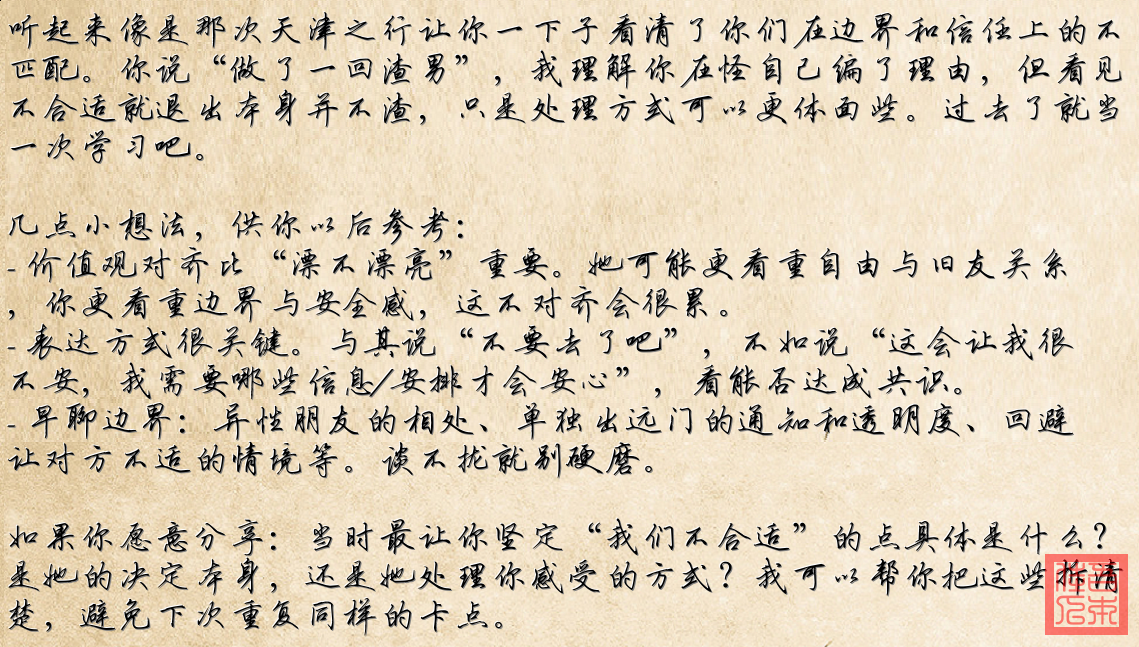 听起来像是那次天津之行让你一下子看清了你们在边界和信任上的不
匹配。你说“做了一回渣男”，我理解你在怪自己编了理由，但看见
不合适就退出本身并不渣，只是处理方式可以更体面些。过去了就当
一次学习吧。
几点小想法，供你以后参考：
- 价值观对齐比“漂不漂亮”重要。她可能更看重自由与旧友关系
，你更看重边界与安全感，这不对齐会很累。
- 表达方式很关键。与其说“不要去了吧”，不如说“这会让我很
不安，我需要哪些信息/安排才会安心”，看能否达成共识。
- 早聊边界：异性朋友的相处、单独出远门的通知和透明度、回避
让对方不适的情境等。谈不拢就别硬磨。
如果你愿意分享：当时最让你坚定“我们不合适”的点具体是什么？
是她的决定本身，还是她处理你感受的方式？我可以帮你把这些拆清
楚，避免下次重复同样的卡点。